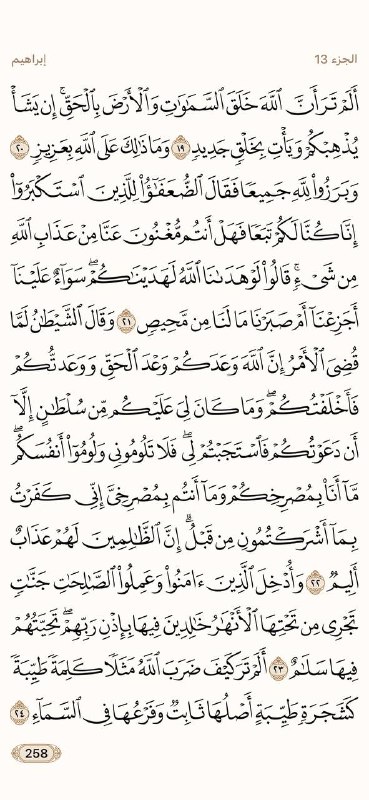 الجزء 13
إبراهيم
أَلَمْ تَرَ أَنَّ ٱللَّهَ خَلَقَ ٱلسَّمَٰوَٰتِ وَٱلْأَرْضَ بِٱلْحَقِّۚ إِن يَشَأْ
يُذْهِبْكُمْ وَيَأْتِ بِخَلْقٍ جَدِيدٍ ١٩ وَمَا ذَٰلِكَ عَلَى ٱللَّهِ بِعَزِيزٍ ٢٠
وَبَرَزُوا۟ لِلَّهِ جَمِيعًا فَقَالَ ٱلضُّعَفَٰٓؤُا۟ لِلَّذِينَ ٱسْتَكْبَرُوٓا۟
إِنَّا كُنَّا لَكُمْ تَبَعًا فَهَلْ أَنتُم مُّغْنُونَ عَنَّا مِنْ عَذَابِ ٱللَّهِ
مِن شَىْءٍۚ قَالُوا۟ لَوْ هَدَىٰنَا ٱللَّهُ لَهَدَيْنَٰكُمْۖ سَوَآءٌ عَلَيْنَآ
أَجَزِعْنَآ أَمْ صَبَرْنَا مَا لَنَا مِن مَّحِيصٍ ٢١ وَقَالَ ٱلشَّيْطَٰنُ لَمَّا
قُضِىَ ٱلْأَمْرُ إِنَّ ٱللَّهَ وَعَدَكُمْ وَعْدَ ٱلْحَقِّ وَوَعَدتُّكُمْ
فَأَخْلَفْتُكُمْۖ وَمَا كَانَ لِىَ عَلَيْكُم مِّن سُلْطَٰنٍ إِلَّآ
أَن دَعَوْتُكُمْ فَٱسْتَجَبْتُمْ لِىۖ فَلَا تَلُومُونِى وَلُومُوٓا۟ أَنفُسَكُمۖ
مَّآ أَنَا۠ بِمُصْرِخِكُمْ وَمَآ أَنتُم بِمُصْرِخِىَّ إِنِّى كَفَرْتُ
بِمَآ أَشْرَكْتُمُونِ مِن قَبْلُۗ إِنَّ ٱلظَّٰلِمِينَ لَهُمْ عَذَابٌ
أَلِيمٌ ٢٢ وَأُدْخِلَ ٱلَّذِينَ ءَامَنُوا۟ وَعَمِلُوا۟ ٱلصَّٰلِحَٰتِ جَنَّٰتٍ
تَجْرِى مِن تَحْتِهَا ٱلْأَنْهَٰرُ خَٰلِدِينَ فِيهَا بِإِذْنِ رَبِّهِمْۖ تَحِيَّتُهُمْ
فِيهَا سَلَٰمٌ ٢٣ أَلَمْ تَرَ كَيْفَ ضَرَبَ ٱللَّهُ مَثَلًا كَلِمَةً طَيِّبَةً
كَشَجَرَةٍ طَيِّبَةٍ أَصْلُهَا ثَابِتٌ وَفَرْعُهَا فِى ٱلسَّمَآءِ ٢٤
258